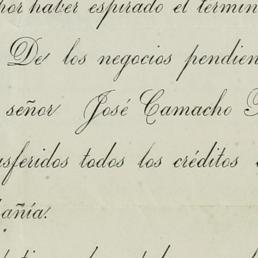 por haber espirado el termin
De los negocios pendien
señor José Camacho
sferidos todos los créditos
añía.